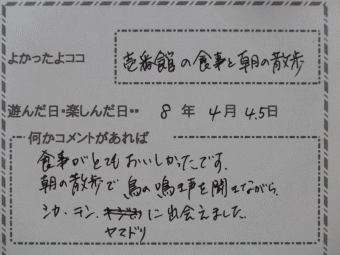 よかったよココ
壱番館の食事と朝の散歩
遊んだ日・楽しんだ日・・ 8 年 4 月 4.5日
何かコメントがあれば
食事がとてもおいしかったです。
朝の散歩で鳥の鳴き声を聞きながら、
シカ・テン、に出会えました。
ヤマドリ